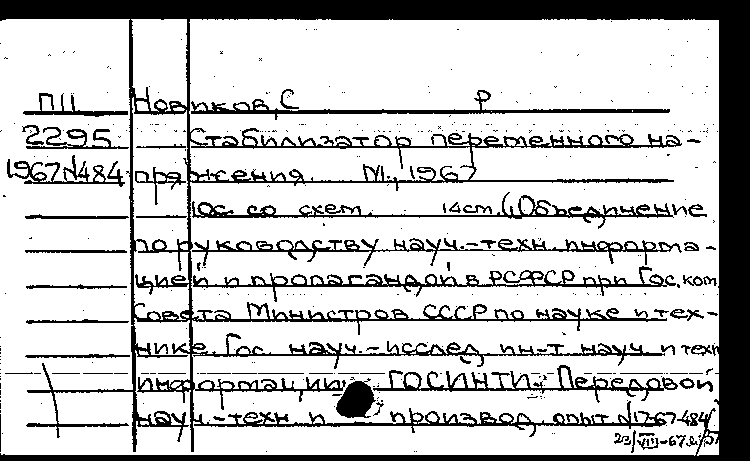 П11 Новиков, С Р
2295 Стабилизатор переменного на-
1967 N484 пряжения. М., 1967
10с. со схем. 14 см. (Объединение
по руководству науч.-техн. информа-
цией и пропагандой в РСФСР при Гос. ком.
Совета Министров СССР по науке и тех-
нике. Гос. науч.-исслед. ин-т науч. и техн.
информации ГОСИНТИ. Передовой
науч.-техн. и производ. опыт. N 17-67-484/
23/VIII-67г.